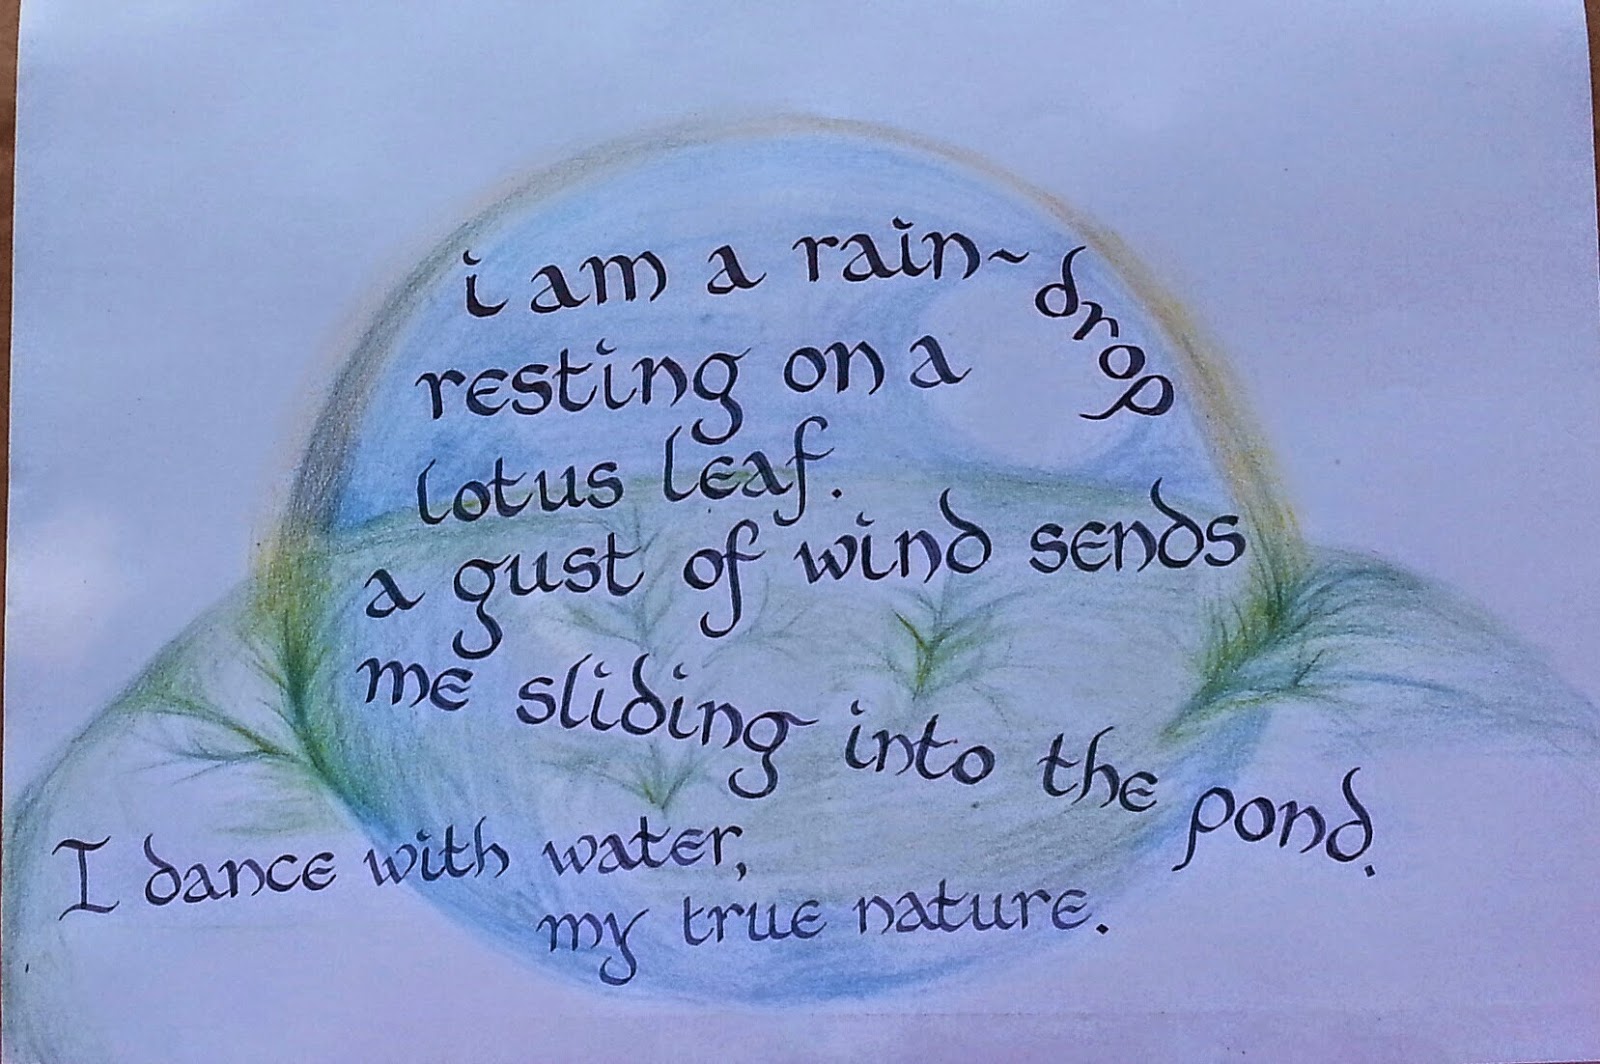 i am a rain~drop
resting on a
lotus leaf.
a gust of wind sends
me sliding into the pond.
I dance with water,
my true nature.